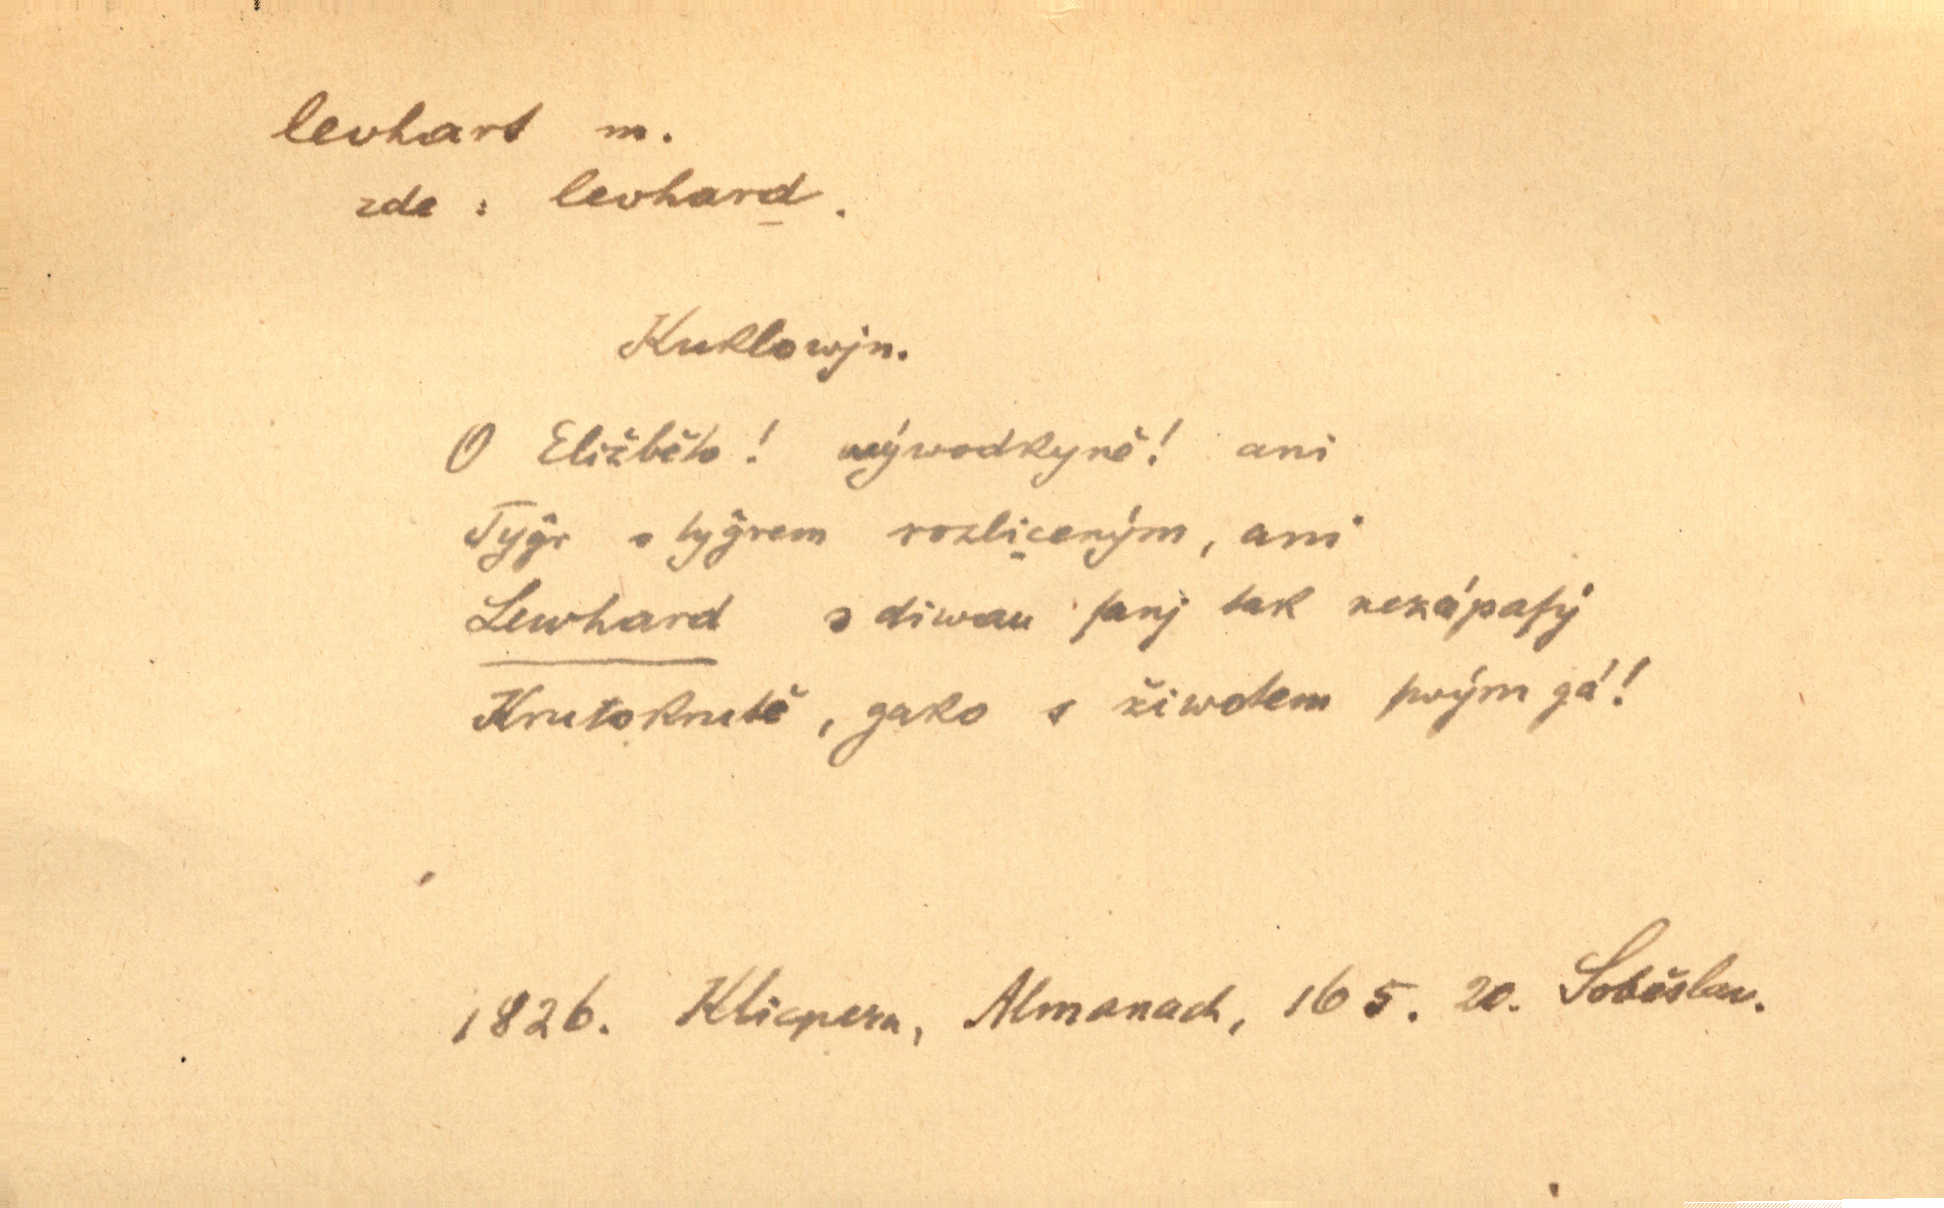 levhart m.
zde : levhard.
Kuklowjn.
O Eližběto! wýwodkyně! ani
Tyğr s tyğrem rozliceným, ani
Lewhard s diwau ſanj tak nezápaſý
Krutokrutě, gako s žiwotem ſwým gá!
1826. Klicpera, Almanach, 165. 20. Soběslav.